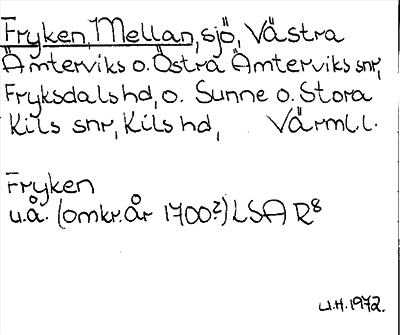 Fryken, Mellan, sjö, Västra
Ämterviks o. Östra Ämterviks snr,
Fryksdals hd, o. Sunne o. Stora
Kils snr, Kils hd, Värml.l.
Fryken
u.å. (omkr. år 1700?) LSA R8
U.H. 1972.